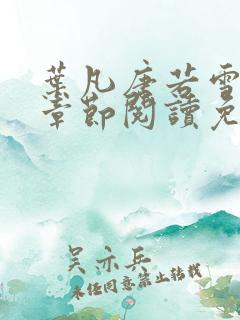 葉凡唐若雪
章節閱讀免
吴亦兵
未经同意禁止转载